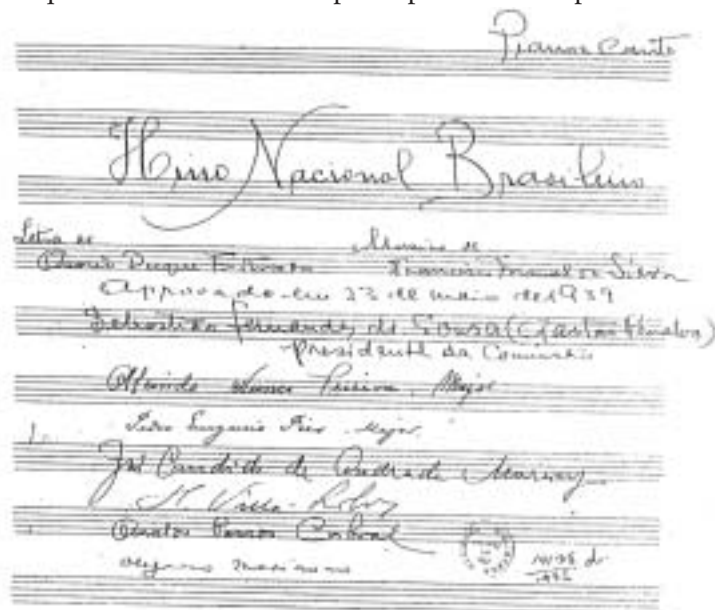 Piano e Canto
Hino Nacional Brasileiro
Letra de Musica de
Osorio Duque Estrada Francisco Manuel da Silva
Approvado em 23 de maio de 1939
Sebastião Fernandes de Sousa (Gastão
Presidente da Comissão
Pereira, Major
Pedro Eugenio Pies Major
José Candido de Andrade Muricy
H. Villa-Lobos
Barros Cabral